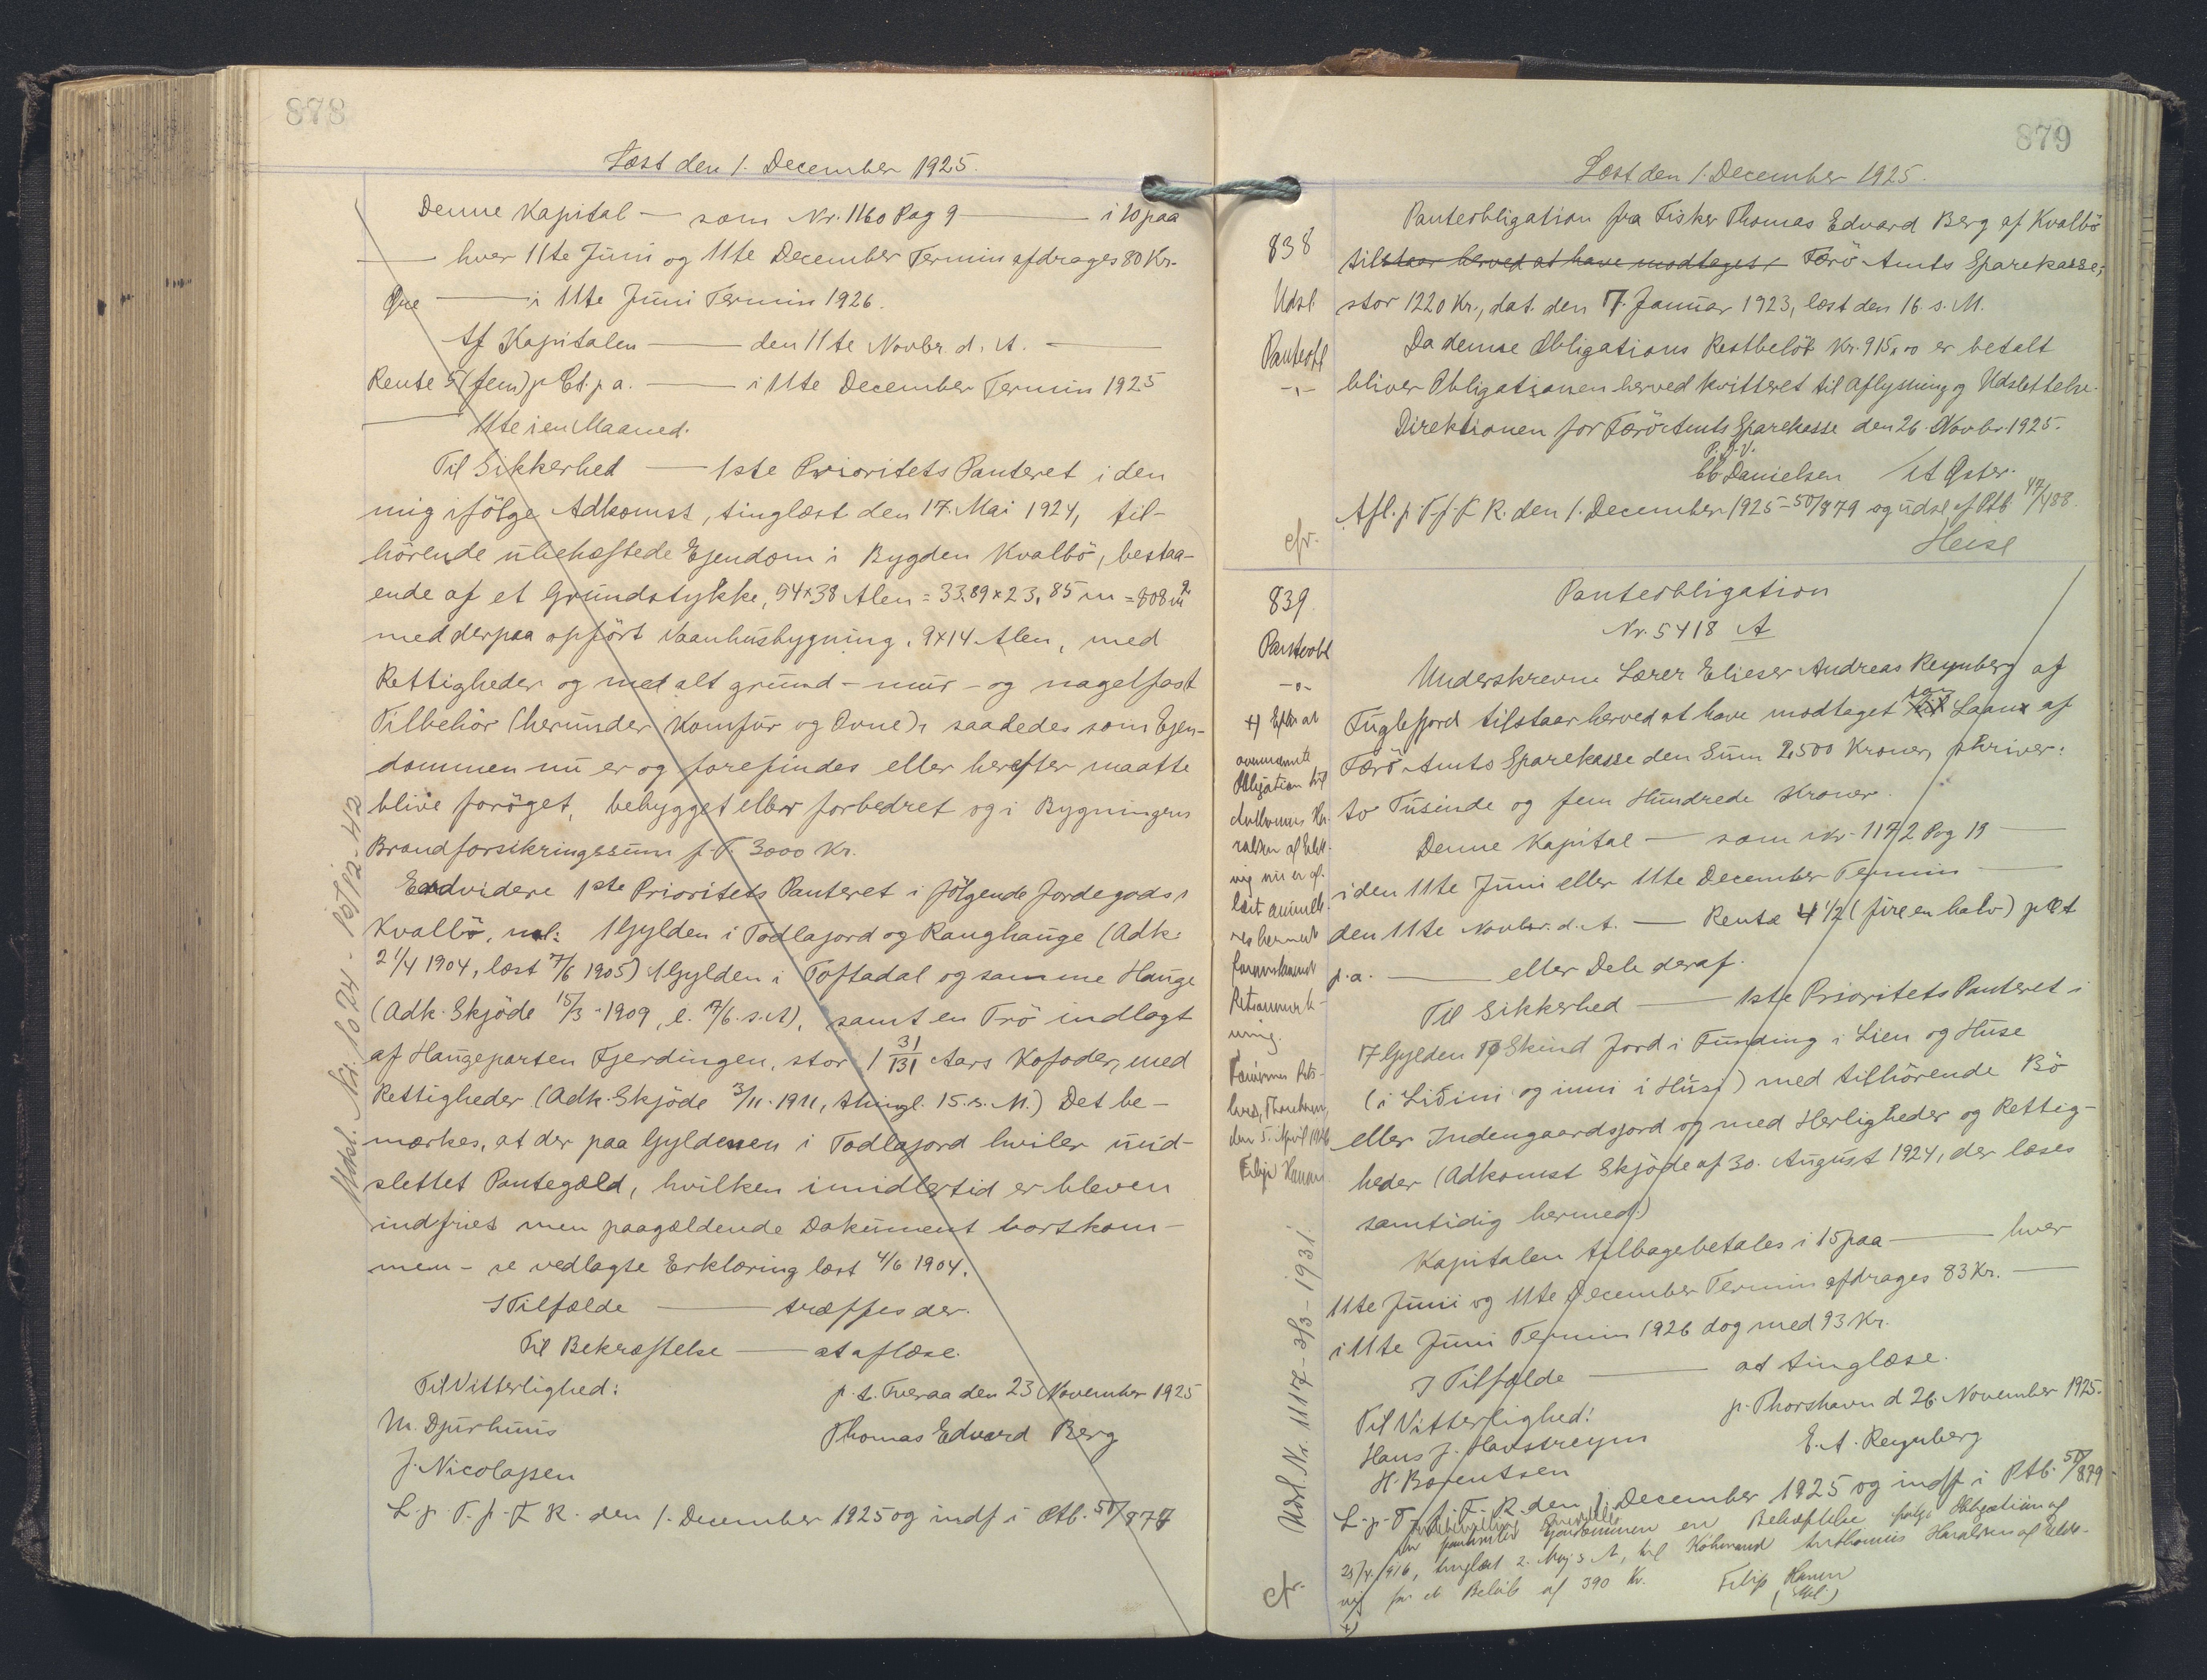 878
Læst den 1. December 1925.
Denne Kapital — som Nr. 1160 Pag 9 — i 10 paa
— hver 11te Juni og 11te December Termin afdrages 80 Kr.
Øre — i 11te Juni Termin 1926.
Af Kapitalen — den 11te Novbr. d. A. —
Rente 5 (fem) p Ct. p a. — i 11te December Termin 1925
— 11te i en Maaned.
Til Sikkerhed — 1ste Prioritets Panteret i den
mig ifölge Adkomst, tinglæst den 17. Mai 1924, til-
hörende ubehæftede Ejendom i Bygden Kvalbö, bestaa-
ende af et Grundstykke, 54x38 Alen = 33,89 x 23,85 m = 808 m2
med derpaa opfört Vaanhusbygning, 9x14 Alen, med
Rettigheder og med alt grund- mur- og nagelfast
Tilbehör (herunder Komfur og Ovne), saadedes som Ejen-
dommen nu er og forefindes eller herefter maatte
blive foröget, bebygget eller forbedret og i Bygningens
Brandforsikringssum p. T. 3000 Kr.
Endvidere 1ste Prioritets Panteret i fölgende Jordegods i
Kvalbö, nml: 1 Gylden i Todlajord og Ranghauge (Adk.
2 1/4 1904, læst 7/6 1905) 1 Gylden i Toftadal og samme Hauge
(Adk. Skjöde 15/3 - 1909, l. 7/6. s. A), samt en Trö indlagt
af Haugeparten Fjerdingen, stor 1 31/131 Aars Kofoder, med
Rettigheder (Adk. Skjöde 3/11. 1911, thingl. 15. s. M.) Det be-
mærkes, at der paa Gyldenen i Todlajord hviler uud-
slettet Pantegæld, hvilken imidlertid er bleven
indfriet men paagældende Dokument bortkom-
men - se vedlagte Erklæring læst 4/6 1904.
I Tilfælde — træffes der.
Til Bekræftelse — at aflæse.
Til Vitterlighed:
p. t. Tveraa den 23 November 1925
M. Djurhuus
Thomas Edvard Berg
J. Nicolajsen
L. p. T. f. F R. den 1. December 1925 og indf i Ptb. 50/877
Udsl. Nr. 1024 - 10/12-42
879
Læst den 1. December 1925.
838
Udsl
Panteobl
-,-
cfr.
Panteobligation fra Fisker Thomas Edvard Berg af Kvalbö
tilstaar herved at have modtaget, Færö Amts Sparekasse,
stor 1220 Kr., dat. den 7. Januar 1923, læst den 16. s. M.
Da denne Obligations Restbelöb Kr. 915,00 er betalt
bliver Obligationen herved kvitteret til Aflysning og Udslettelse.
Direktionen for Færö Amts Sparekasse den 26. Novbr. 1925.
P. D. V.
CC Danielsen / A Øster.
Afl. p. T. f. F R. den 1. December 1925 - 50/879 og udsl af Ptb. 47/488.
Heise
839
Panteobl
-o-
+) Efter at
ovennævnte
Obligation til
Anthonius Ha-
raldsen af Elde-
vig nu er af-
læst annulle-
res hermed
foranstaaende
Retsanmærk-
ning.
Færøernes Rets-
kreds, Thorshavn,
den 5. April 1926
Filip Hansen
Udsl. Nr. 1117 - 3/3 - 1931.
cfr.
Panteobligation
Nr. 5418 A
Underskrevne Lærer Elieser Andreas Reynberg af
Fuglefjord tilstaar herved at have modtaget til som Laan af
Færö Amts Sparekasse den Sum 2,500 Kroner, skriver:
to Tusinde og fem Hundrede Kroner.
Denne Kapital — som Nr. 1172 Pag 19 —
i den 11te Juni eller 11te December Termin —
den 11te Novbr. d. A. — Rente 4 1/2 (fire en halv) p Ct
p. a. — eller Dele deraf.
Til Sikkerhed — 1ste Prioritets Panteret i
17 Gylden 10 Skind Jord i Funding i Lien og Huse
(i Liðini og inni i Húsi) med tilhörende Bö
eller Indengaardsjord og med Herligheder og Rettig-
heder (Adkomst Skjöde af 30. August 1924, der læses
samtidig hermed)
Kapitalen tilbagebetales i 15 paa — hver
11te Juni og 11te December Termin afdrages 83 Kr. —
i 11te Juni Termin 1926 dog med 93 Kr.
I Tilfælde — at tinglæse.
Til Vitterlighed:
p. Thorshavn d 26. November 1925.
Hans J. Havstreym
E. A. Reynberg
H. Bærentsen
L. p. T. f. F. R. den 1. December 1925 og indf i Ptb. 50/879
den pantsatte Ejendommen en Behæftelse ifølge Obligation af
25/4. 1916, tinglæst 2. Maj s A, til Købmand Anthonius Haraldsen af Elde-
vig for et Beløb af 390 Kr. Filip Hansen
(cst)
+)